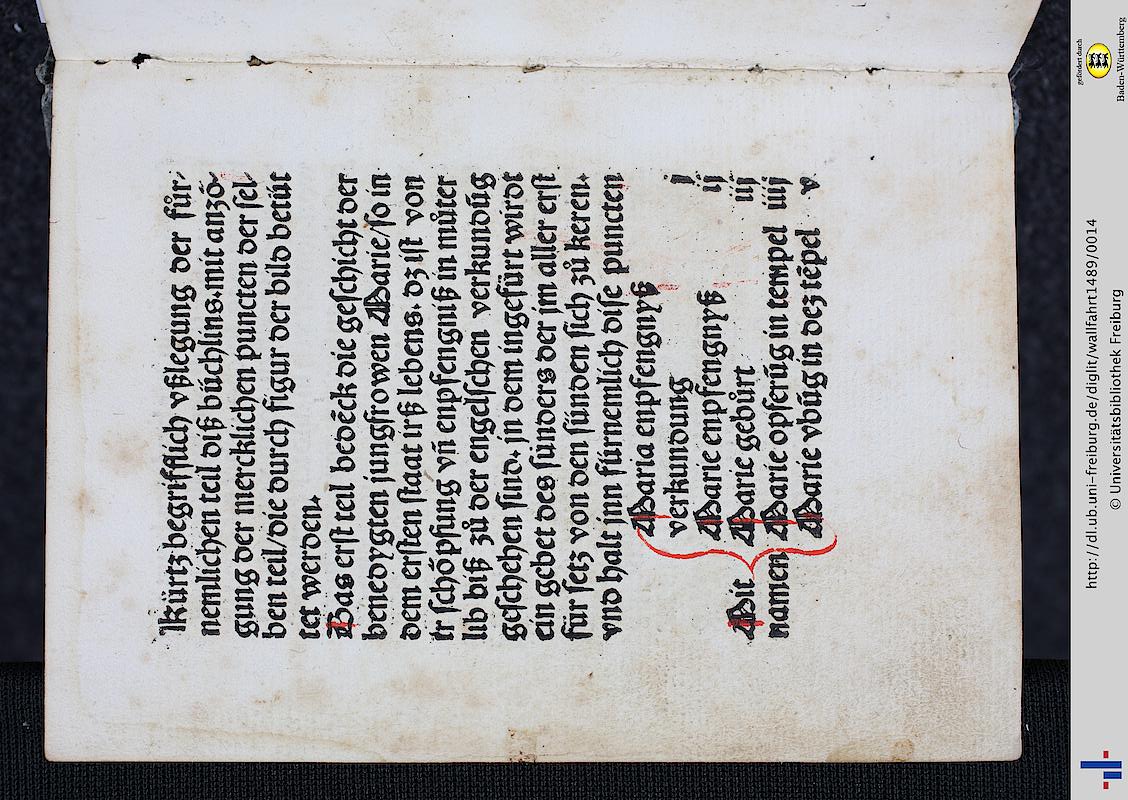 Kürtz begrifflich vßlegung der für⸗
nemlichen teil diß büchlins. mit anzö⸗
gung der mercklichen puncten der sel⸗
ben teil / die durch figur der bild betüt
tet werden.
Das erst teil bedeckt die geschicht der
benedygten jungfrowen Marie / so in
dem ersten staat irß lebens. dz ist von
ir schöpfung vñ enpfengniß in můter
lib biß zů der engelschen verkundūg
geschehen sind. jn dem ingefürt wirdt
ein gebet des sünders der jm aller erst
für setz von den sünden sich zů keren.
vnd halt jnn fürnemlich dise puncten
Maria enpfengnyß j
verkundung
Marie enpfengnyß ij
Mit Marie gebůrt iij
namen Marie opferūg in tempel iiij
Marie vbūg in dez tēpel v
gefördert durch
Baden-Württemberg
http://dl.ub.uni-freiburg.de/diglit/wallfahrt1489/0014
© Universitätsbibliothek Freiburg